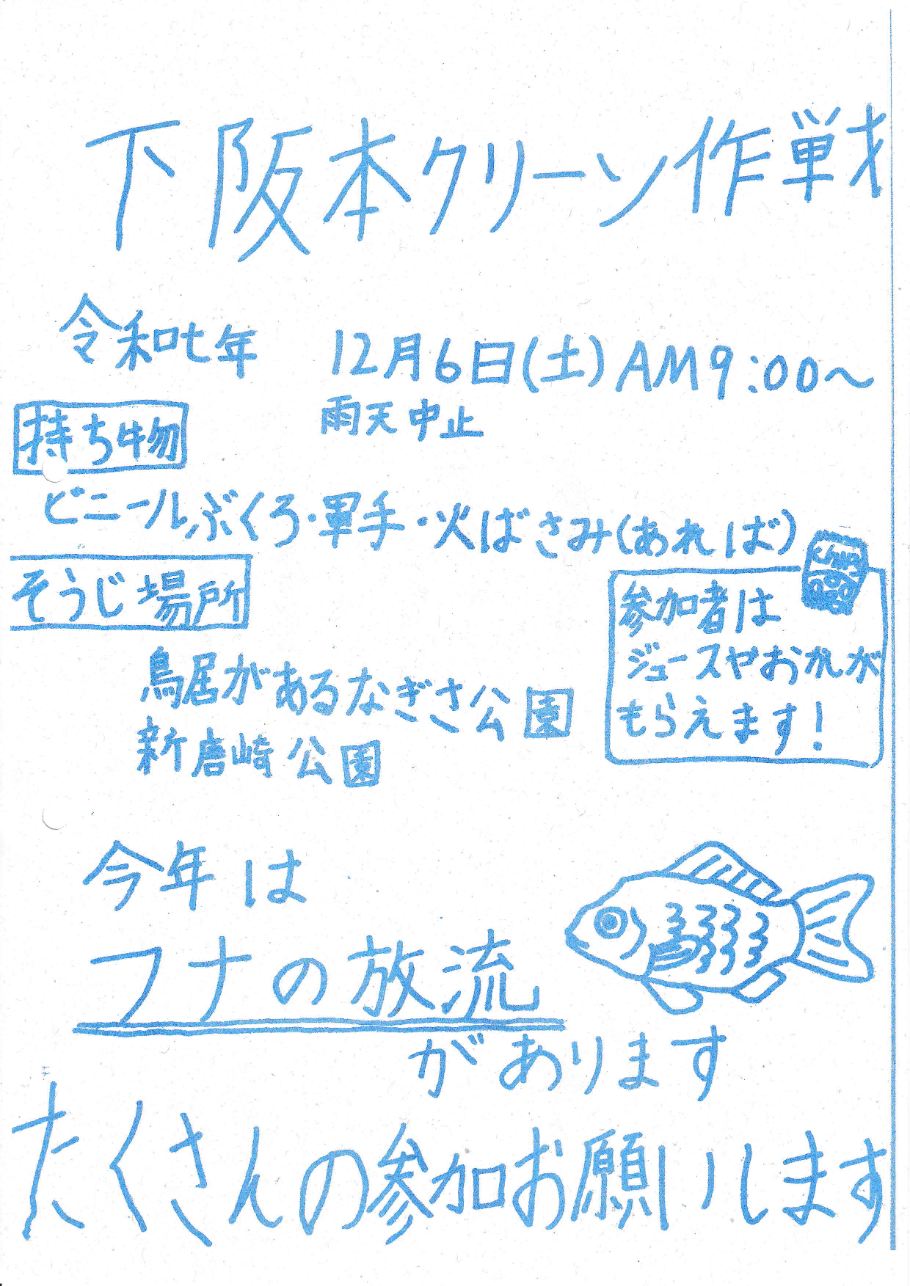 下阪本クリーン作戦
令和七年 12月6日(土)AM9:00〜
雨天中止
持ち物
ビニールぶくろ・軍手・火ばさみ(あれば)
そうじ場所
鳥居があるなぎさ公園
新唐崎公園
参加者は
ジュースやおかしが
もらえます!
今年は
フナの放流
があります
たくさんの参加お願いします